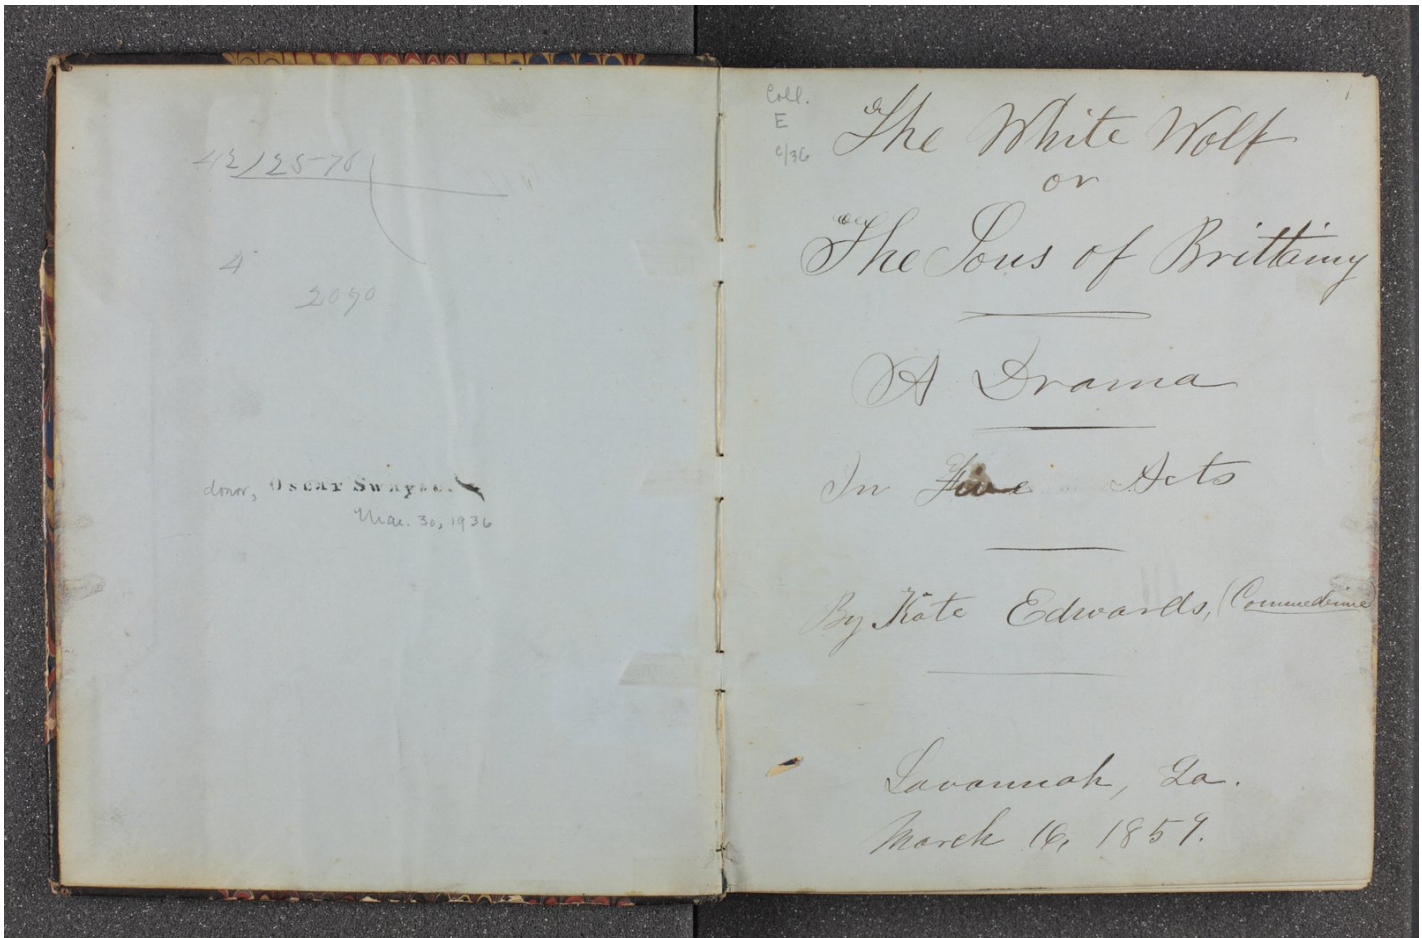 42)25-70(
4
2070
donor, Oscar Swayze.
Mar. 30, 1936
Coll.
E
c/36
1
The White Wolf
or
The Sons of Brittainy
A Drama
In Five Acts
By Kate Edwards, (Commedienne)
Savannah, Ga.
March 16, 1859.